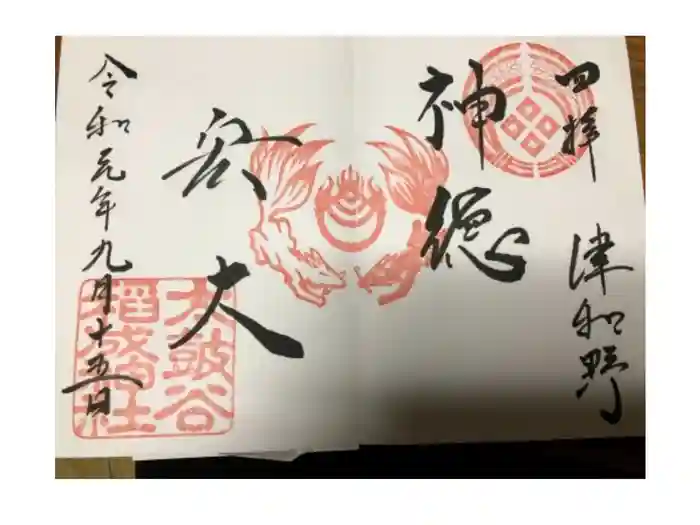 四拝
津和野
神徳
宏大
令和元年九月十五日
太皷谷
稲成神社